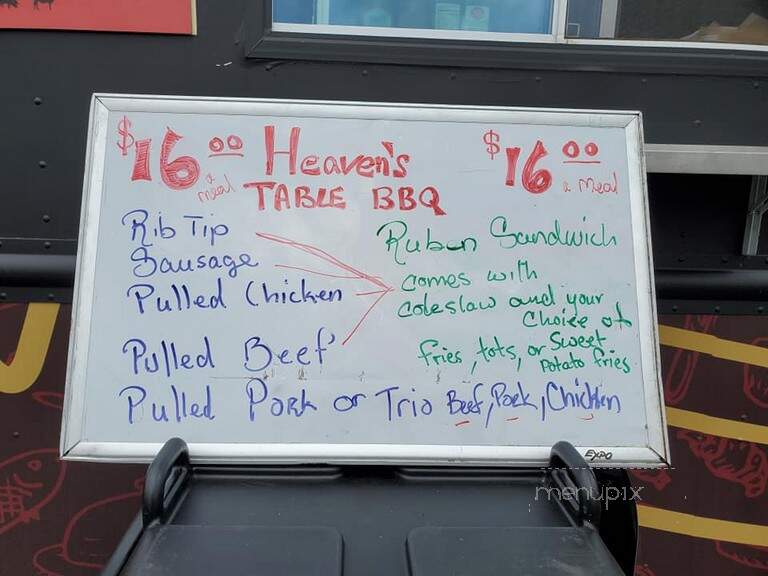 $16.00 a meal Heaven's $16.00 a meal
TABLE BBQ
Rib Tip
Sausage
Pulled Chicken
Pulled Beef
Ruben Sandwich
comes with
coleslaw and your
Choice of
fries, tots, or Sweet
Potato fries
Pulled Pork or Trio Beef, Pork, Chicken
EXPO
menupix